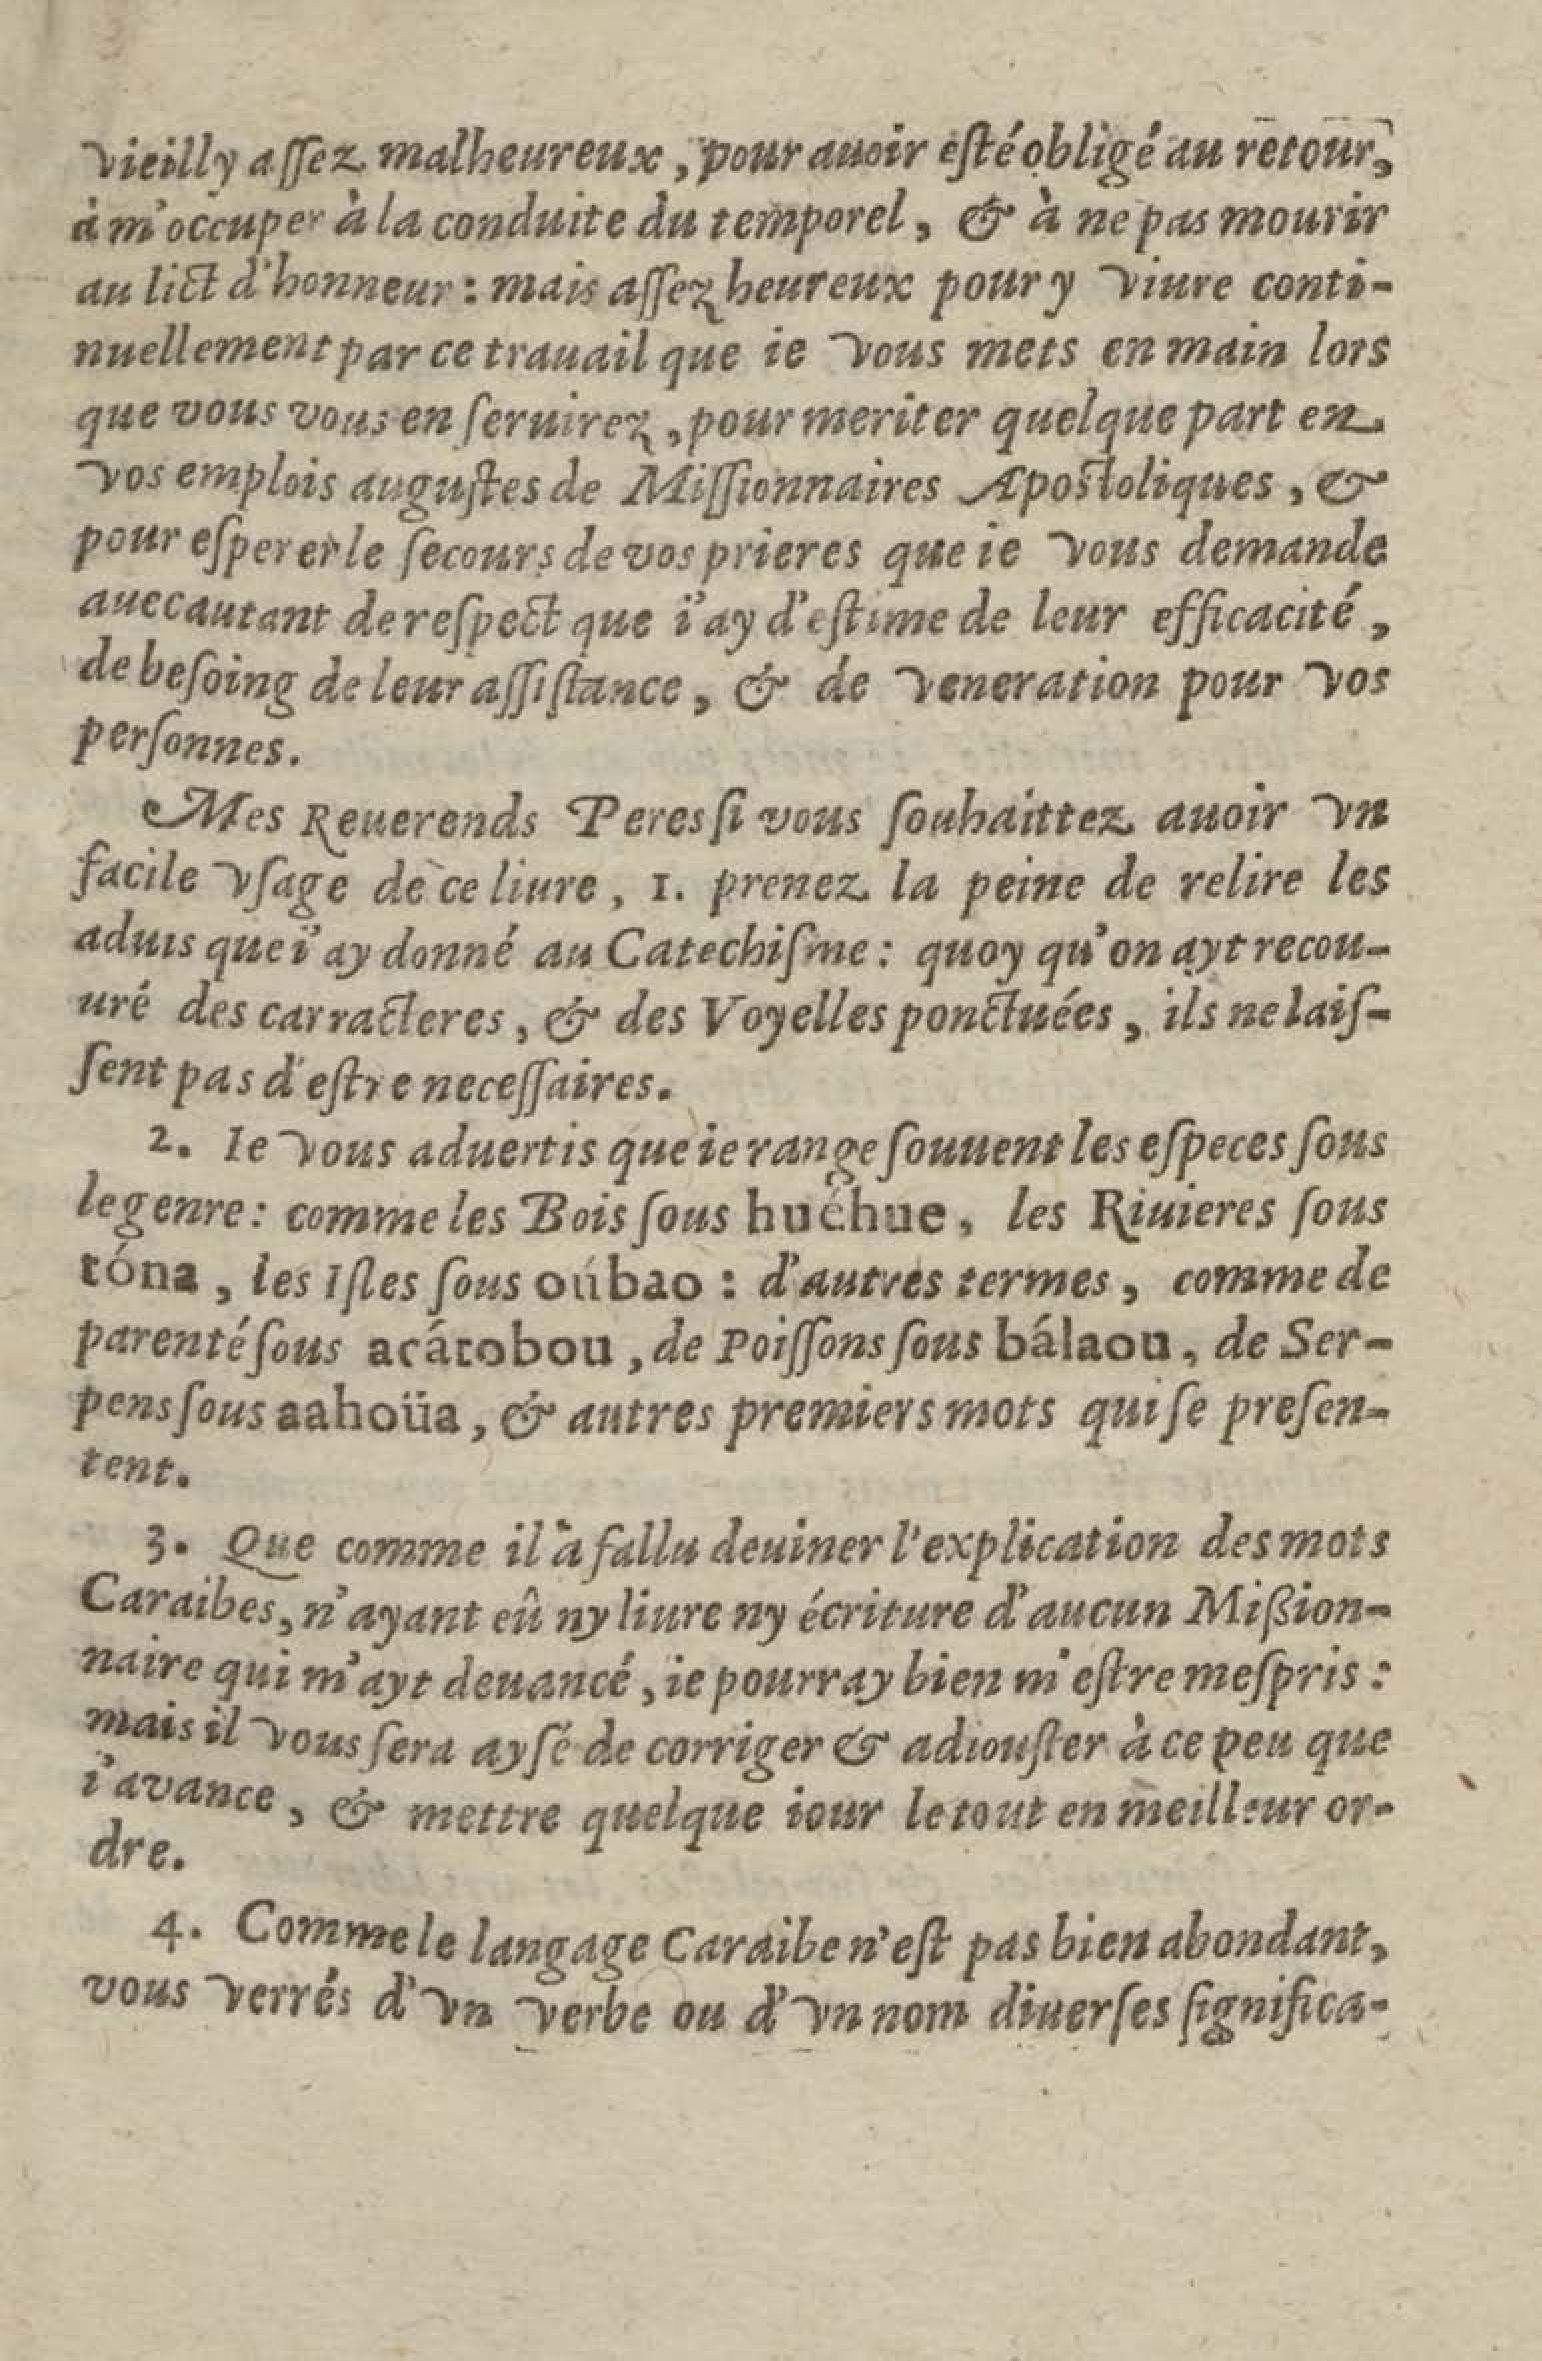 vieilly aſſez malheureux, pour auoir eſté obligé au retour,
à m'occuper à la conduite du temporel, & à ne pas mourir
au lict d'honneur : mais aſſez heureux pour y viure conti-
nuellement par ce trauail que ie vous mets en main lors
que vous vous en ſeruirez, pour meriter quelque part en
vos emplois auguſtes de Miſſionnaires Apoſtoliques, &
pour eſperer le ſecours de vos prieres que ie vous demande
auec autant de reſpect que i'ay d'eſtime de leur efficacité,
de beſoing de leur aſſiſtance, & de veneration pour vos
perſonnes.
Mes Reuerends Peres ſi vous ſouhaittez auoir vn
facile vſage de ce liure, 1. prenez la peine de relire les
aduis que i'ay donné au Catechiſme : quoy qu'on ayt recou-
uré des carracteres, & des Voyelles ponctuées, ils ne laiſ-
ſent pas d'eſtre neceſſaires.
2. Ie vous aduertis que ie range ſouuent les eſpeces ſous
le genre : comme les Bois ſous huéhue, les Riuieres ſous
tóna, les Iſles ſous oúbao : d'autres termes, comme de
parenté ſous acátobou, de Poiſſons ſous bálaou, de Ser-
pens ſous aahoüa, & autres premiers mots qui ſe preſen-
tent.
3. Que comme il a fallu deuiner l'explication des mots
Caraibes, n'ayant eû ny liure ny écriture d'aucun Mißion-
naire qui m'ayt deuancé, ie pourray bien m'eſtre meſpris :
mais il vous ſera ayſé de corriger & adiouſter à ce peu que
i'avance, & mettre quelque iour le tout en meilleur or-
dre.
4. Comme le langage Caraibe n'eſt pas bien abondant,
vous verrés d'vn verbe ou d'vn nom diuerſes ſignifica-